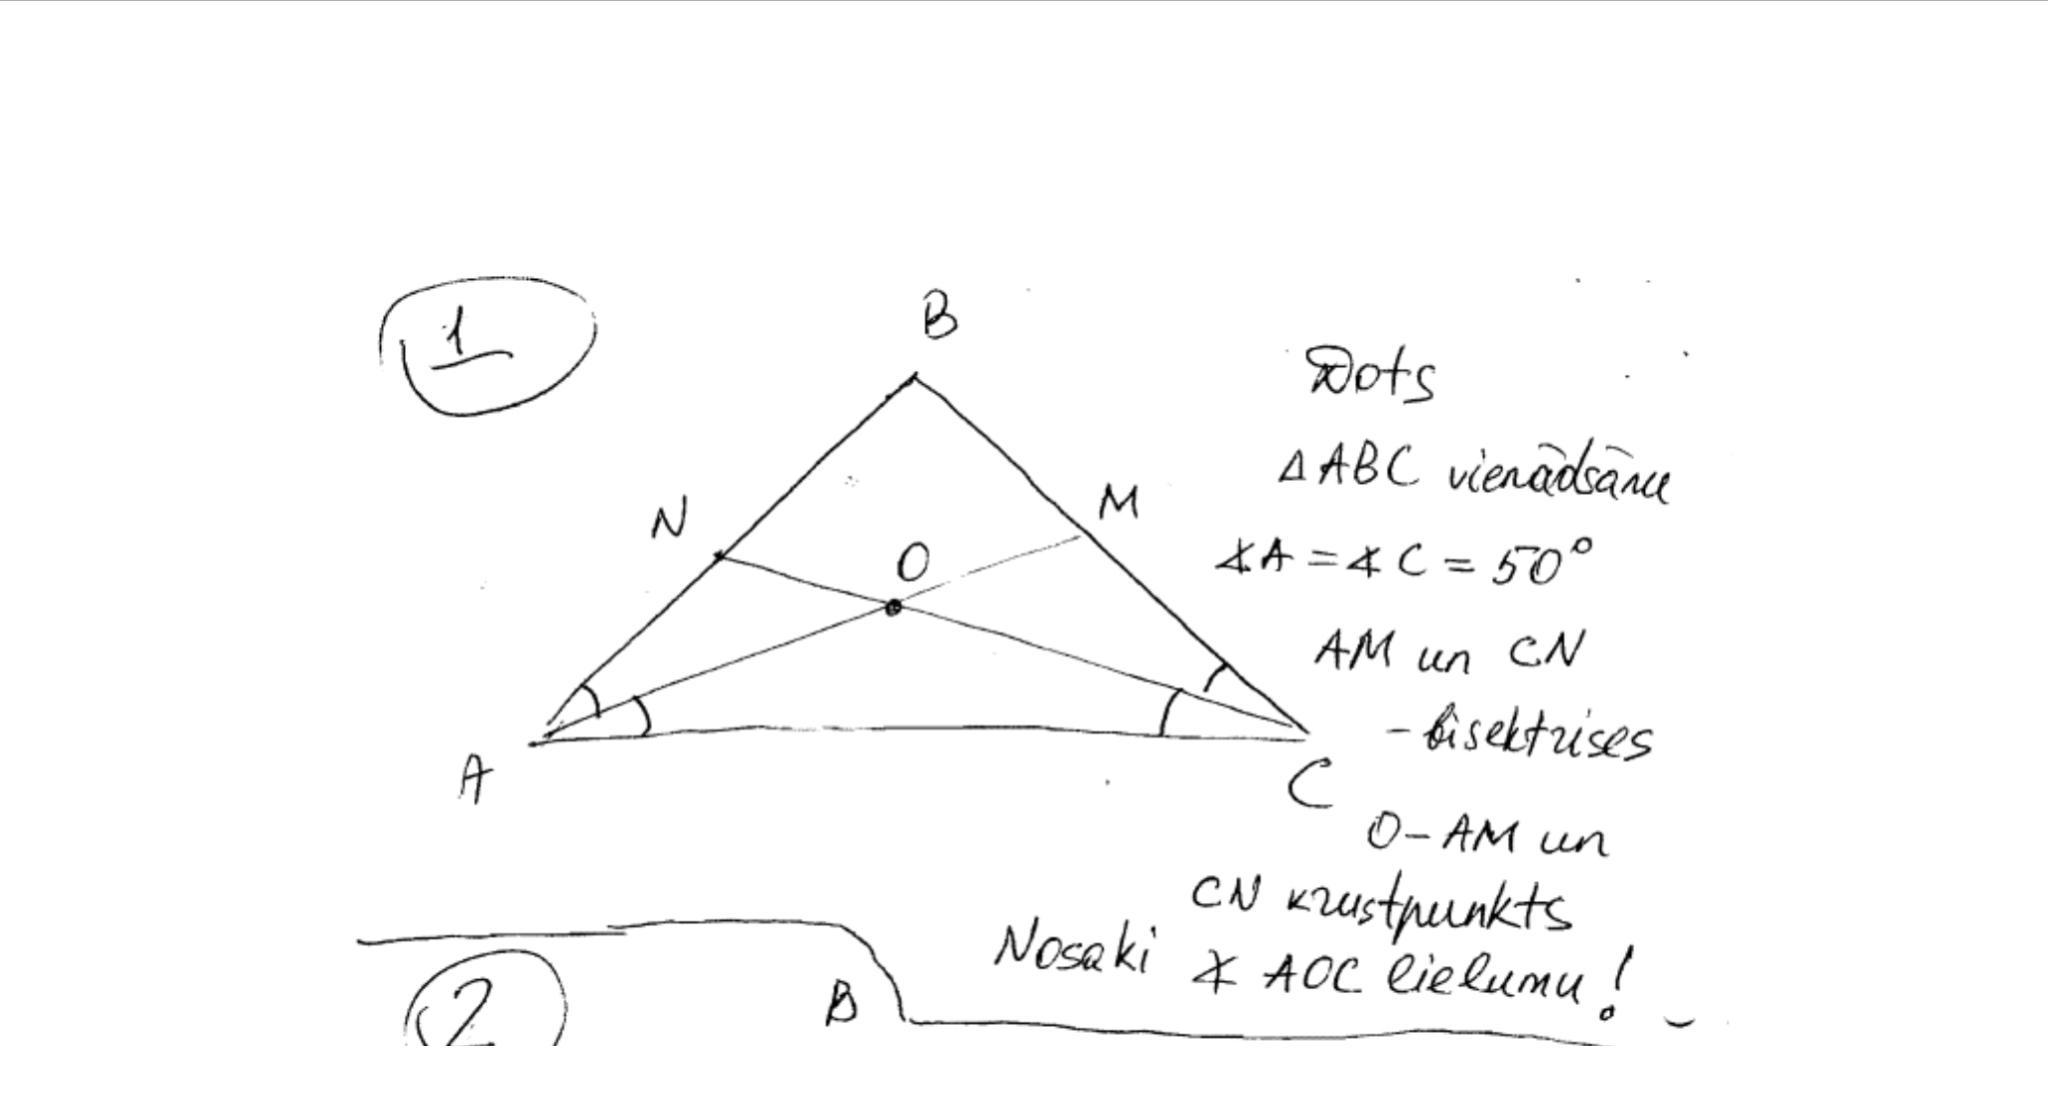 1
B
Dots
△ABC vienādsānu
N
M
∡A = ∡C = 50°
O
AM un CN
- bisektrises
A
C
O - AM un
CN krustpunkts
Nosaki ∡ AOC lielumu!
2
B